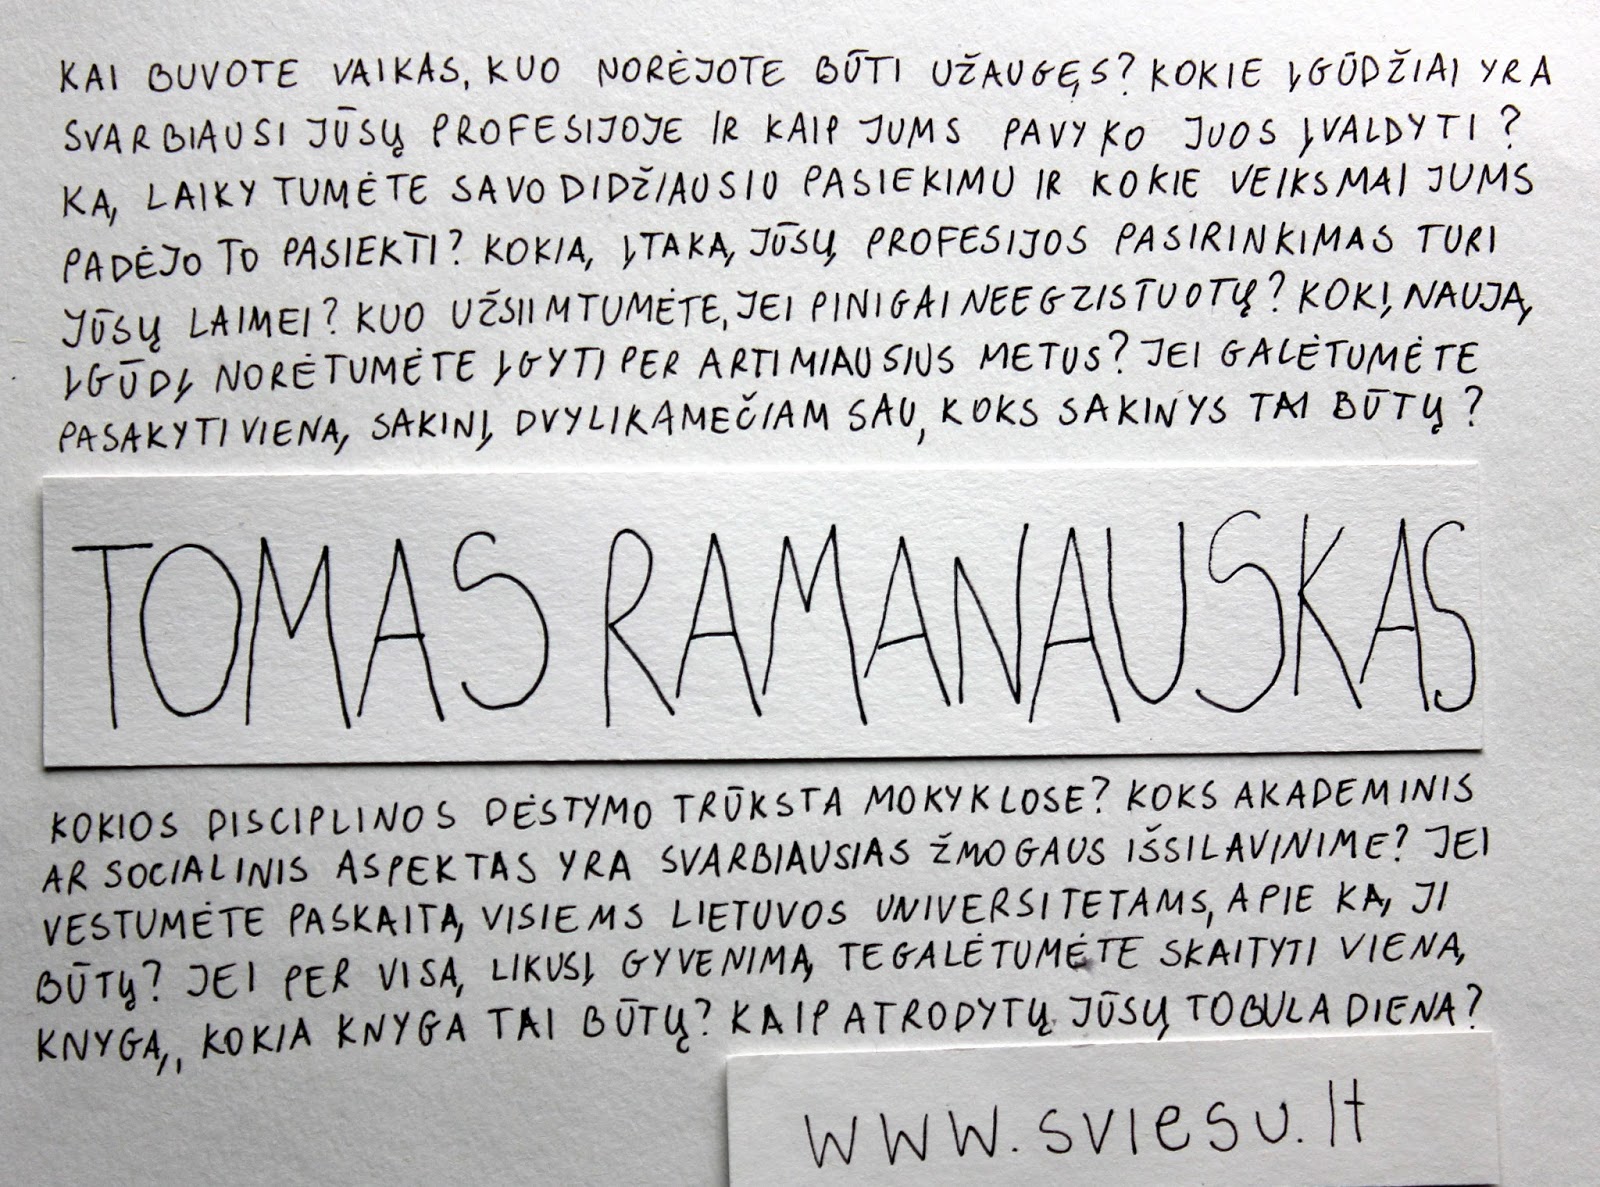 KAI BUVOTE VAIKAS, KUO NORĖJOTE BŪTI UŽAUGĘS? KOKIE ĮGŪDŽIAI YRA
SVARBIAUSI JŪSŲ PROFESIJOJE IR KAIP JUMS PAVYKO JUOS ĮVALDYTI?
KĄ LAIKYTUMĖTE SAVO DIDŽIAUSIU PASIEKIMU IR KOKIE VEIKSMAI JUMS
PADĖJO TO PASIEKTI? KOKIĄ ĮTAKĄ JŪSŲ PROFESIJOS PASIRINKIMAS TURI
JŪSŲ LAIMEI? KUO UŽSIIMTUMĖTE, JEI PINIGAI NEEGZISTUOTŲ? KOKĮ NAUJĄ
ĮGŪDĮ NORĖTUMĖTE ĮGYTI PER ARTIMIAUSIUS METUS? JEI GALĖTUMĖTE
PASAKYTI VIENĄ SAKINĮ DVYLIKAMEČIAM SAU, KOKS SAKINYS TAI BŪTŲ?
TOMAS RAMANAUSKAS
KOKIOS DISCIPLINOS DĖSTYMO TRŪKSTA MOKYKLOSE? KOKS AKADEMINIS
AR SOCIALINIS ASPEKTAS YRA SVARBIAUSIAS ŽMOGAUS IŠSILAVINIME? JEI
VESTUMĖTE PASKAITĄ VISIEMS LIETUVOS UNIVERSITETAMS, APIE KĄ JI
BŪTŲ? JEI PER VISĄ LIKUSĮ GYVENIMĄ TEGALĖTUMĖTE SKAITYTI VIENĄ
KNYGĄ, KOKIA KNYGA TAI BŪTŲ? KAIP ATRODYTŲ JŪSŲ TOBULA DIENA?
www.sviesu.lt